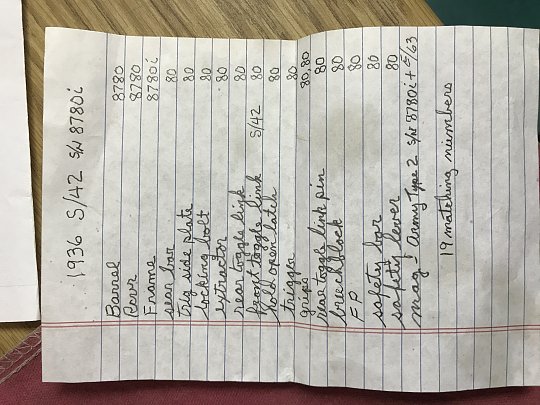 1936 S/42 S/N 8780i
Barrel 8780
Recvr 8780
Frame 8780i
sear bar 80
trig side plate 80
locking bolt 80
extractor 80
rear toggle link 80
front toggle link S/42 80
hold open latch 80
trigger 80
grips 80,80
rear toggle link pin 80
breechblock 80
FP 80
safety bar 80
safety lever 80
mag! Army Type 2 S/N 8780i + E/63
19 matching numbers